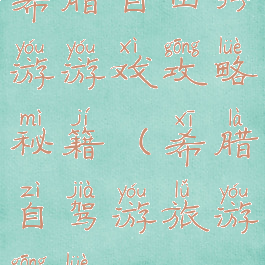 希腊自由驾
yóu yóu xì gōng lüè
游游戏攻略
mì jí xī là
秘籍（希腊
zì jià yóu lǚ yóu
自驾游旅游
gōng lüè